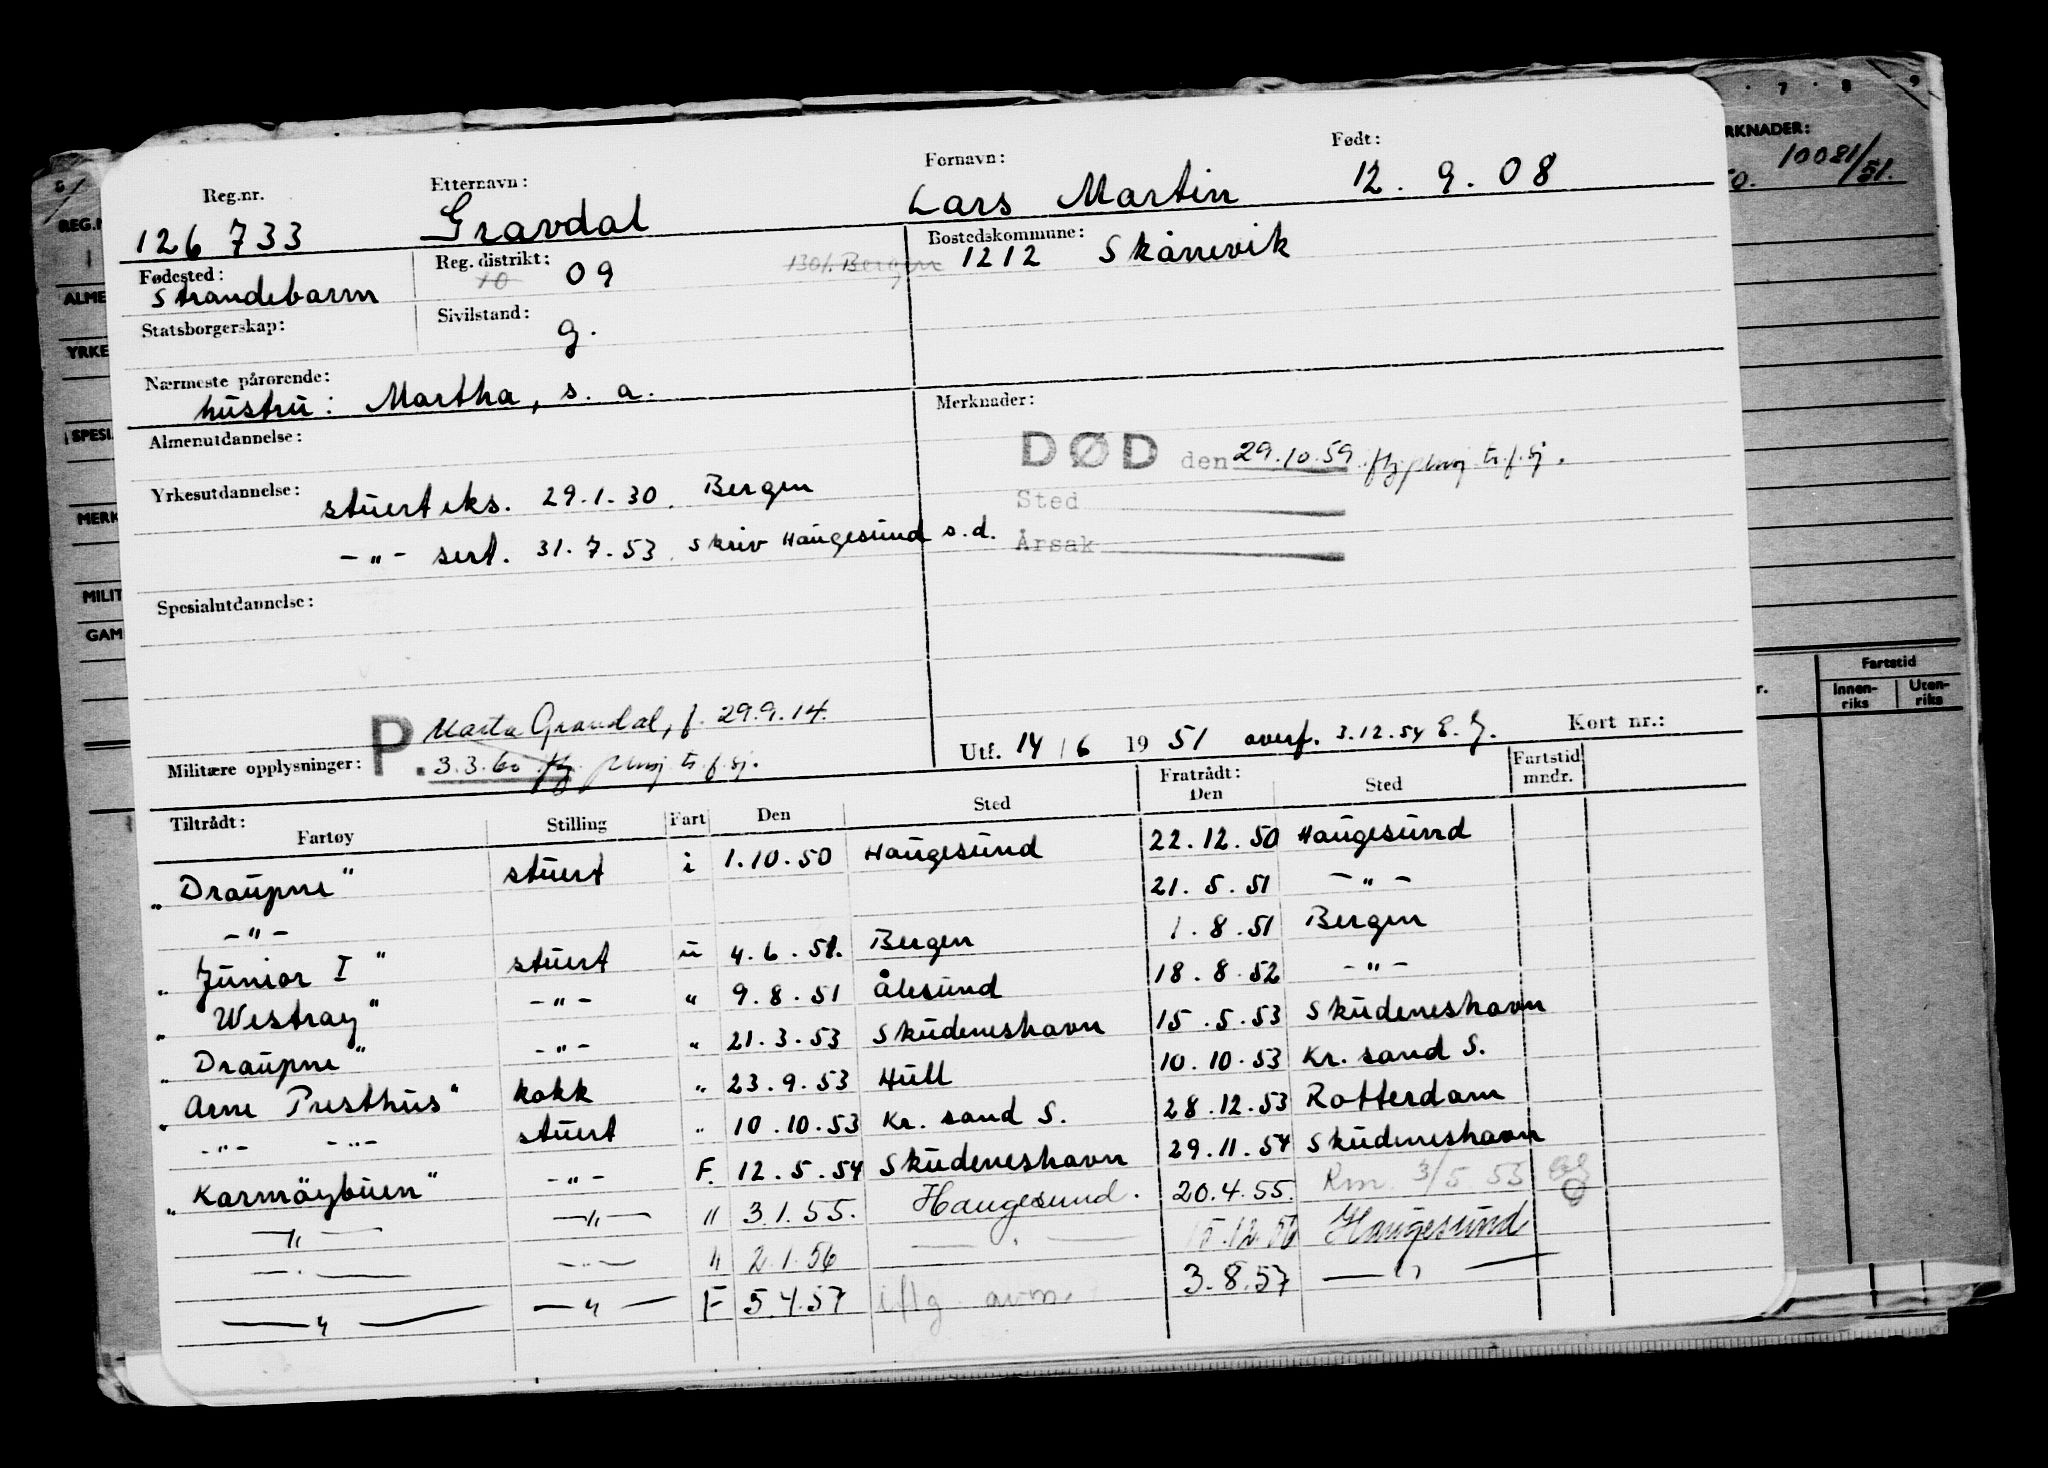 7 8 9
RKNADER:
10081/51.
Reg.nr. Etternavn: Fornavn: Født:
126733 Gravdal Lars Martin 12. 9. 08
Fødested: Reg. distrikt: Bostedskommune:
Strandebarm 10 09 1301 Bergen 1212 Skånevik
Statsborgerskap: Sivilstand: g.
Nærmeste pårørende:
hustru: Martha, s. a.
Almenutdannelse: Merknader:
DØD den 29.10.59
Yrkesutdannelse: stuert eks. 29.1.30. Bergen
Sted
-"- sert. 31.7.53. skriv Haugesund s.d.
Årsak
Spesialutdannelse:
P. Marta Gravdal, f. 29.9.14.
Utf. 14/6 1951 overf. 3.12.54 E. Kort nr.:
Militære opplysninger: 3.3.60
Tiltrådt: Fratrådt: Fartstid mndr.
Fartøy Stilling Fart Den Sted Den Sted
"Draupne" stuert i 1.10.50 Haugesund 22.12.50 Haugesund
-"- 21.5.51 -"-
"Junior I" stuert u 4.6.51. Bergen 1.8.51 Bergen
"Westray" -"- " 9.8.51 Ålesund 18.8.52 -"-
"Draupne" -"- " 21.3.53 Skudeneshavn 15.5.53 Skudeneshavn
"Arne Presthus" kokk " 23.9.53 Hull 10.10.53 Kr. sand S.
-"- -"- stuert " 10.10.53 Kr. sand S. 28.12.53 Rotterdam
"Karmöybuen" -"- F. 12.5.54 Skudeneshavn 29.11.54 Skudeneshavn
-"- -"- " 3.1.55. Haugesund. 20.4.55. Rm. 3/5.55
-"- -"- " 2.1.56 -"- 15.12.56 Haugesund
-"- -"- F 5.4.57 iflg. avm. 3.8.57 -"-
REG.N
ALME
YRKE
SPESI
MERK
MILIT
GAM
Fartstid
Innen-riks Uten-riks